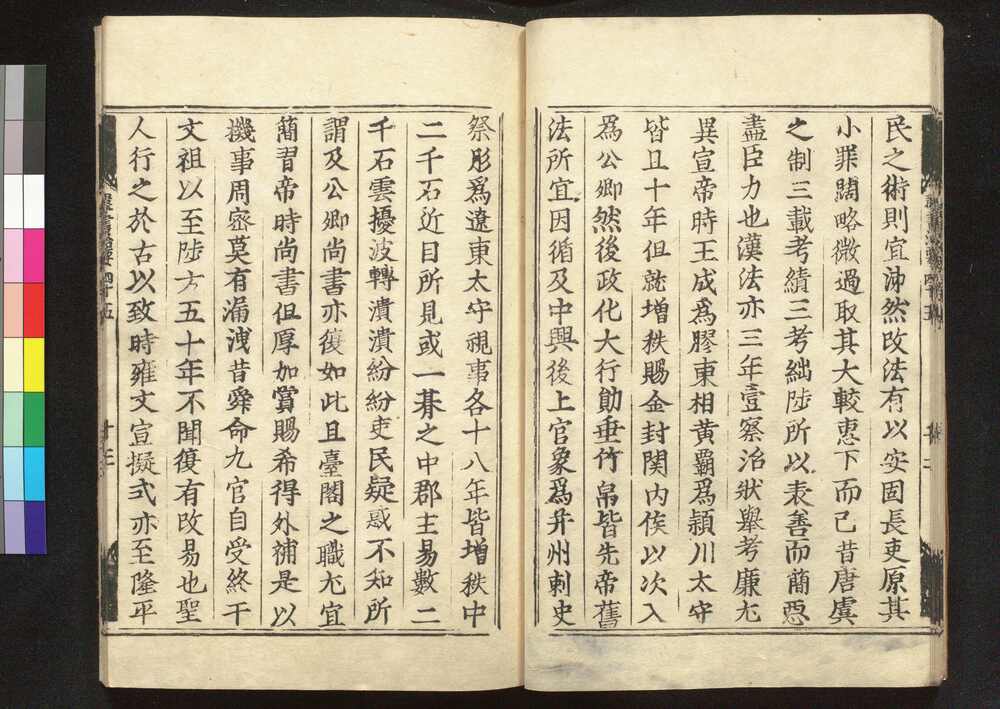 民之術則宜沛然改法有以安固長吏原其
小罪闊略微過取其大較惠下而已昔唐虞
之制三載考績三考絀陟所以表善而簡惡
盡臣力也漢法亦三年壹察治狀舉考廉尤
異宣帝時王成爲膠東相黃霸爲潁川太守
皆且十年但就增秩賜金封関內侯以次入
爲公卿然後政化大行勛垂竹帛皆先帝舊
法所宜因循及中興後上官象爲并州刺史
祭肜爲遼東太守視事各十八年皆增秩中
二千石近目所見或一朞之中郡主易數二
千石雲擾波轉潰潰紛紛吏民疑惑不知所
謂及公卿尚書亦復如此且臺閣之職尤宜
簡習帝時尚書但厚加賞賜希得外補是以
機事周密莫有漏洩昔舜命九官自受終于
文祖以至陟方五十年不聞復有改易也聖
人行之於古以致時雍文宣擬式亦至隆平
四十五